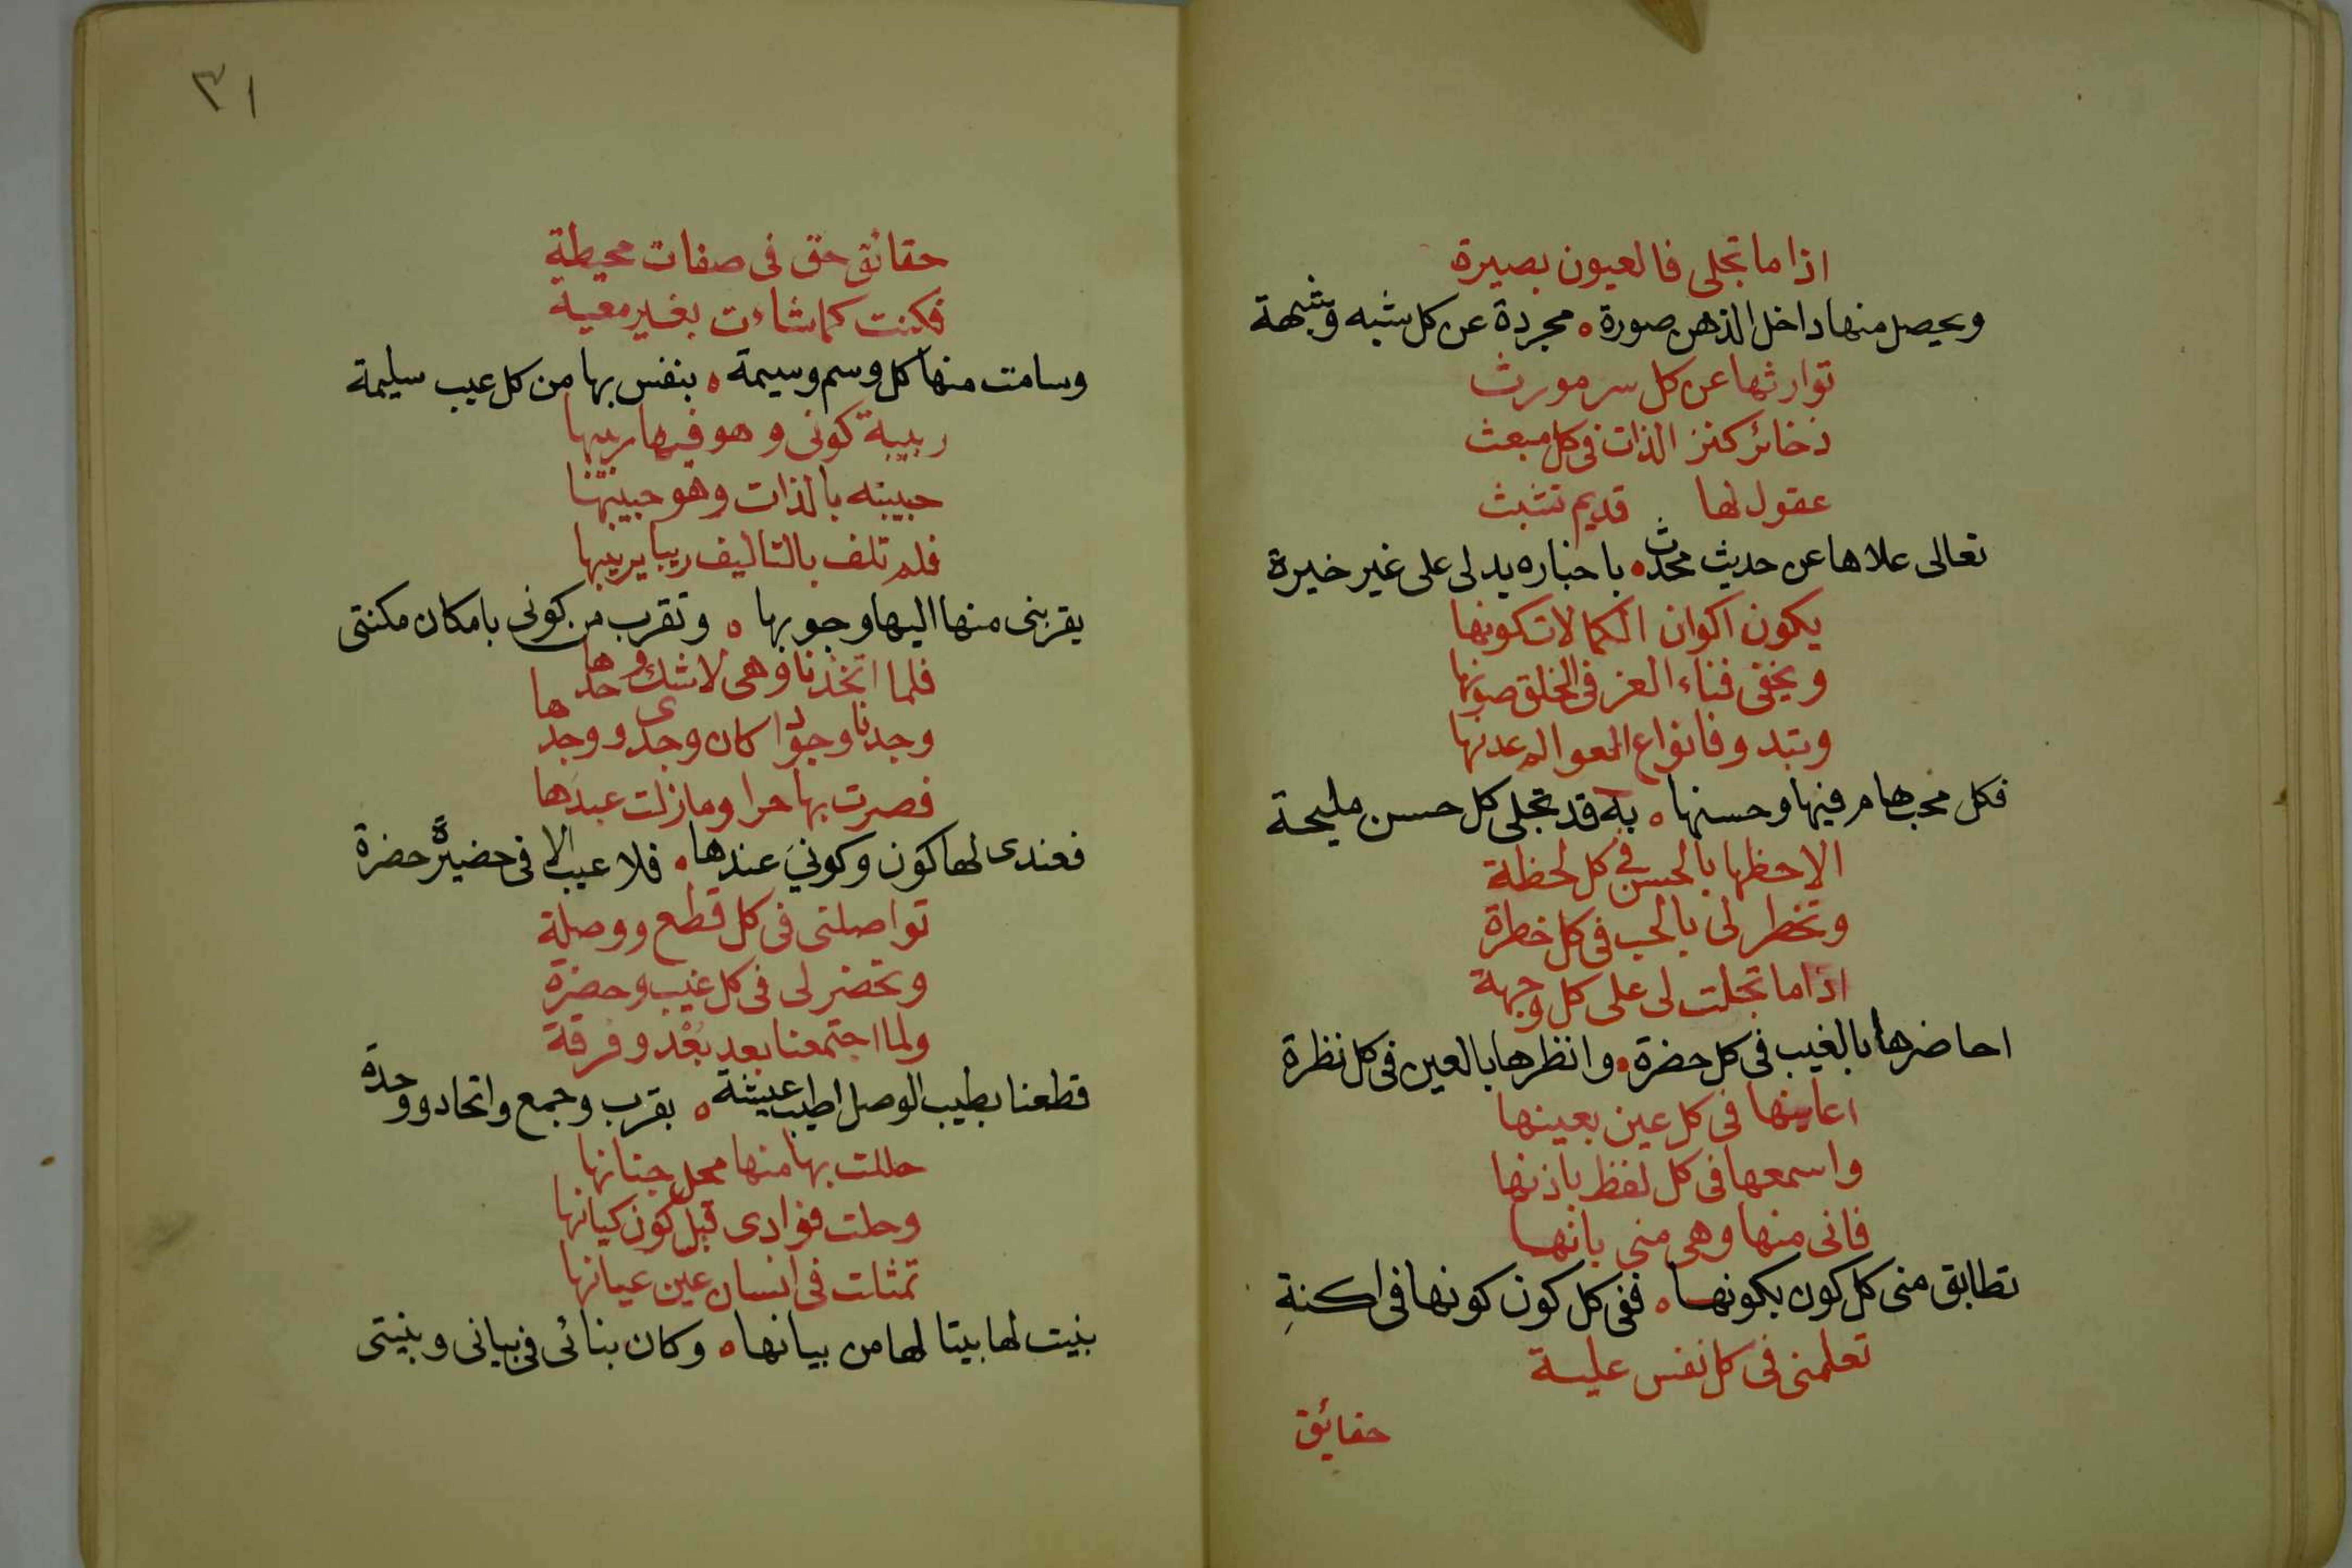 اذا ما تجلى فالعيون بصيرة
ويحصل منها داخل الذهن صورة ه مجردة عن كل شبه وشبهة
توارثها عن كل سر مورث
ذخائر كنز الذات فى كل مبعث
عقول لها قديم تشبث
تعالى علاها عن حديث محدث ه باخباره يدلى على غير خيرة
يكون اكوان الكمالات كونها
ويخفى فناء العز فى الخلق صونها
وتبدو فانواع العوالم عدنها
فكل محب هام فيها وحسنها ه به قد تجلى كل حسن مليحة
الاحظها بالحسن فى كل لحظة
وتخطر لى بالحب فى كل خطرة
اذا ما تجلت لى على كل وجهة
احاضرها بالغيب فى كل حضرة ه وانظرها بالعين فى كل نظرة
اعاينها فى كل عين بعينها
واسمعها فى كل لفظ باذنها
فانى منها وهى منى بانها
تطابق منى كل كون بكونها ه ففى كل كون كونها فى اكنة
تعلمنى فى كل نفس علية
حقايق
٣١
حقائق حق فى صفات محيطة
فكنت كما شاءت بغير معية
وسامت منها كل وسم وسيمة ه بنفس بها من كل عيب سليمة
ربيبة كونى وهو فيها ربيبها
حبيبته بالذات وهو حبيبها
فلم تلف بالتاليف ريبا يريبها
يقربنى منها اليها وجوبها ه وتقرب من كونى بامكان مكنتى
فلما اتخذنا وهى لا شك وحدها
وجدنا وجودا كان وجدى ووجدها
فصرت بها حرا وما زلت عبدها
فعندى لها كون وكونى عندها ه فلا عيب الا فى حضيرة حضرة
تواصلتى فى كل قطع ووصلة
وتحضر لى فى كل غيب وحضرة
ولما اجتمعنا بعد بعد وفرقة
قطعنا بطيب الوصل اطيب عيشة ه بقرب وجمع واتحاد ووحدة
حللت بها منها محل جنانها
وحلت فوادى قبل كون كيانها
تمثلت فى انسان عين عيانها
بنيت لها بيتا لها من بيانها ه وكان بنائى فى بيانى وبنيتى